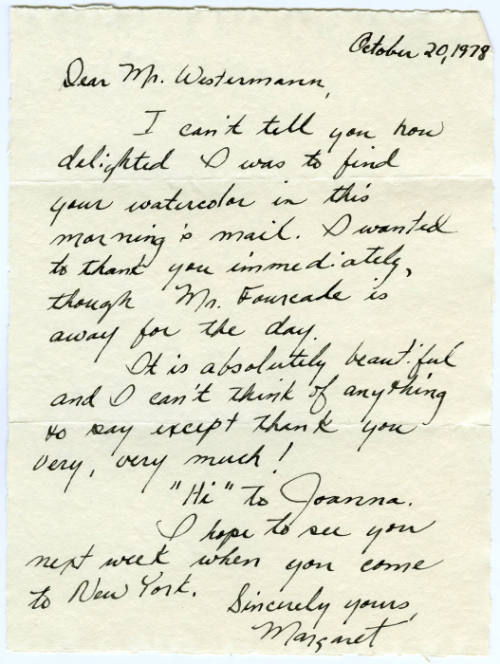 October 20, 1978
Dear Mr. Westermann,
I can't tell you how
delighted I was to find
your watercolor in this
morning's mail. I wanted
to thank you immediately,
though Mr. Fourcade is
away for the day.
It is absolutely beautiful
and I can't think of anything
to say except thank you
very, very much!
"Hi" to Joanna.
I hope to see you
next week when you come
to New York.
Sincerely yours,
Margaret